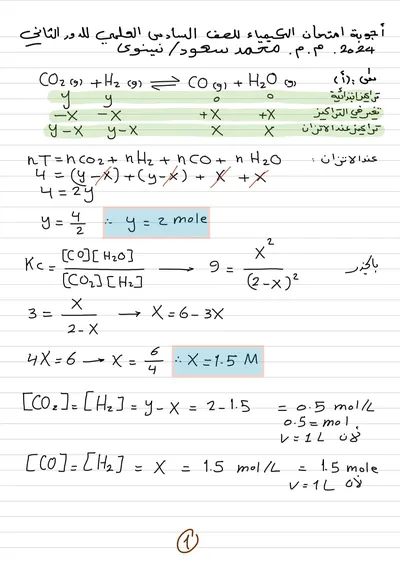 أجوبة امتحان الكيمياء للصف السادس العلمي للدور الثاني
2024 م.م. محمد سعود / نينوى
CO₂(g) + H₂(g) ⇌ CO(g) + H₂O(g)
تراكيز ابتدائية y y 0 0
تغير في التراكيز -X -X +X +X
تراكيز عند الاتزان y-X y-X X X
عند الاتزان : nT = nCO₂ + nH₂ + nCO + nH₂O
4 = (y-X) + (y-X) + X + X
4 = 2y
y = 4/2 ∴ y = 2 mole
Kc = [CO][H₂O]/[CO₂][H₂] → 9 = X²/(2-X)² بالجذر
3 = X/2-X → X = 6-3X
4X = 6 → X = 6/4 ∴ X = 1.5 M
[CO₂] = [H₂] = y-X = 2-1.5 = 0.5 mol/L
0.5 = mol.
V = 1L لأن
[CO] = [H₂] = X = 1.5 mol/L = 1.5 mole
V = 1L لأن
1